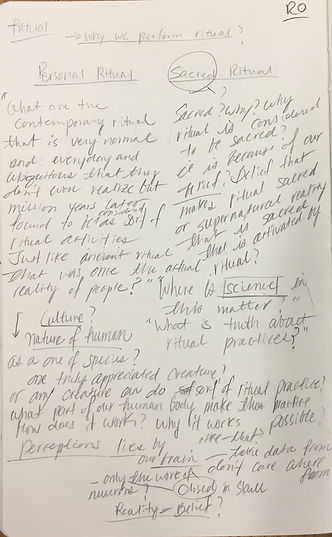 RO
Ritual
→ why we perform ritual?
Personal Ritual
"What are the
contemporary ritual
that is very normal
and everyday and
ubiquitous that they
don't even realize but
million years later
found to be as considered sort of
ritual activities
Just like ancient ritual
that was once the actual
reality of people?"
Sacred Ritual
?
Sacred? Why? why
ritual is considered
to be sacred?
it is because of our
belief? Belief that
makes ritual sacred
or supernatural reality
that is sacred,
that is activated by
ritual?
"Where is Science in
this matter?"
"What is truth about
ritual practices?"
↓ Culture?
nature of human
as a one of species?
one truly appreciated creature?
or any creature can do sort of ritual practice?
what part of our human body make this practice
possible?
How does it work? Why it works like that?
perceptions lies by
our brain — take data from
don't care where from
— only the work of
neurons?
Closed in skull
Reality = Belief?